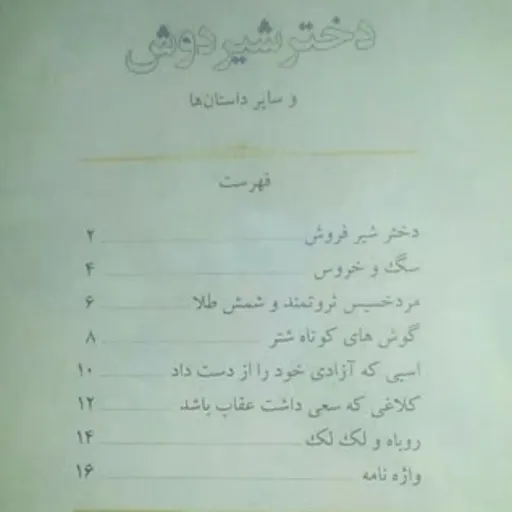 دختر شیر دوش
و سایر داستان‌ها
فهرست
دختر شیر فروش ۲
سگ و خروس ۴
مردخسیس ثروتمند و شمش طلا ۶
گوش های کوتاه شتر ۸
اسبی که آزادی خود را از دست داد ۱۰
کلاغی که سعی داشت عقاب باشد ۱۲
روباه و لک لک ۱۴
واژه نامه ۱۶